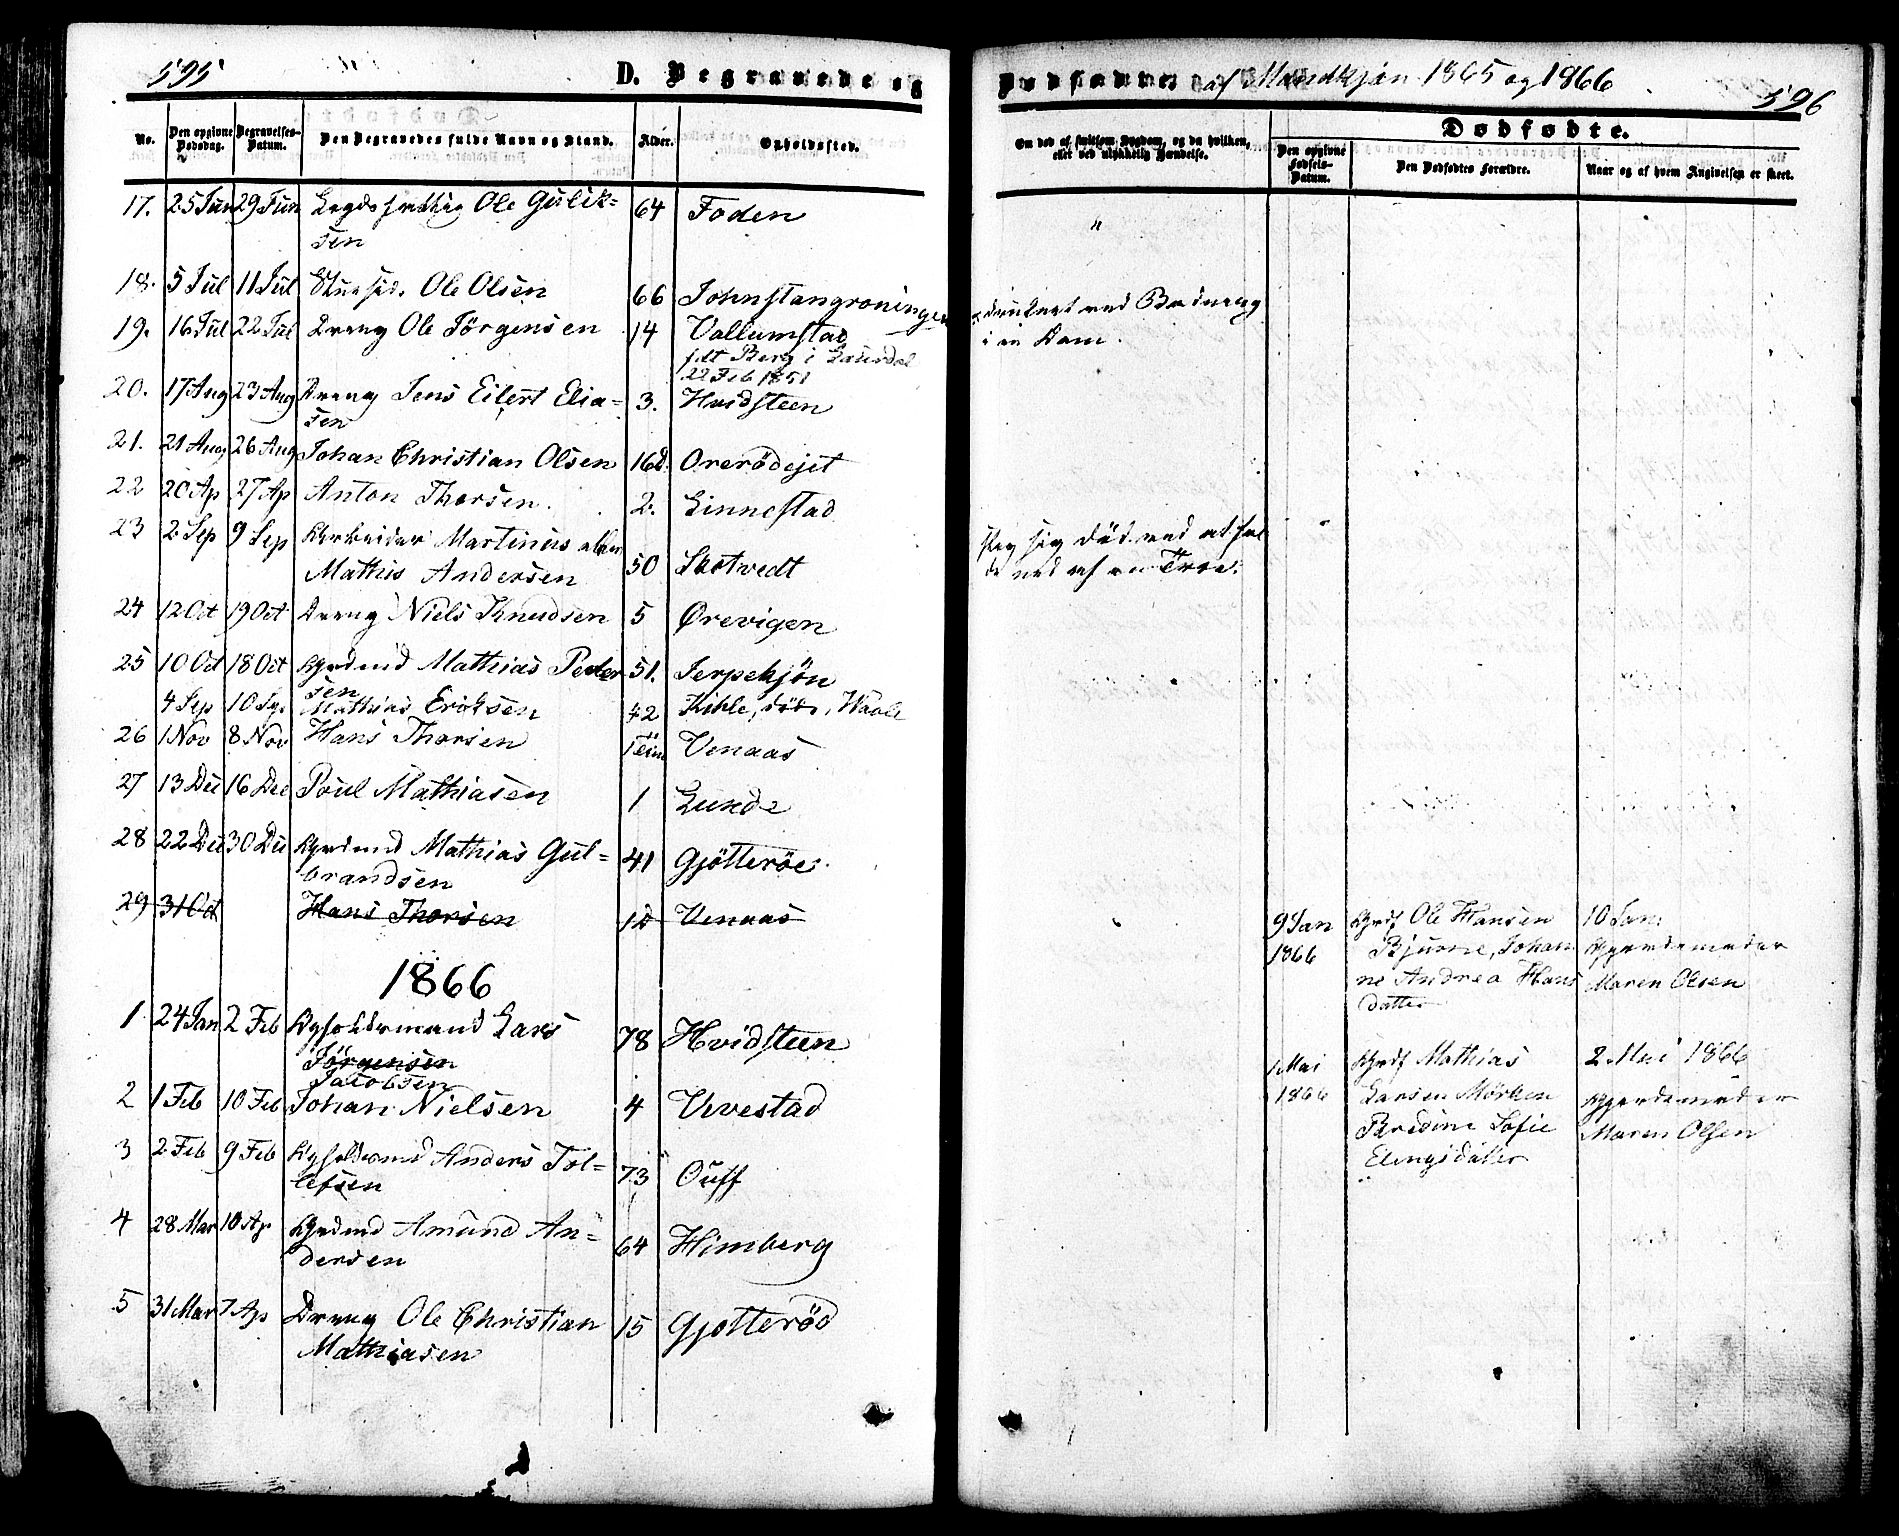 595
D. Begravede og
No.
Den opgivne Dødsdag.
Begravelses-Datum.
Den Begravedes fulde Navn og Stand.
Alder.
Opholdssted.
17. 25 Jun 29 Jun Ole Gulik=
sen 64 Foden
18. 5 Jul 11 Jul Ole Olsen 66 Johnstangroningen
19. 16 Jul 22 Jul Dreng Ole Jörgensen 14 Vollumstad
født Berg i
22 Feb 1851
20. 17 Aug 23 Aug Dreng Jens Eilert Elia=
sen 3. Hvidsteen
21. 21 Aug 26 Aug Johan Christian Olsen 16 D. Orerödejet
22 20 Ap 27 Ap Anton Thorsen. 2. Linnestad
23 2 Sep 9 Sep Arbeider Martinus eller
Mathis Andersen 50 Skotvedt
24 12 Oct 19 Oct Dreng Niels Knudsen 5 Ørevigen
25 10 Oct 18 Oct Grdmd Mathias Peder
sen 51. Jerpekjön
4 Sep 10 Sep Mathias Eriksen 42 Kihle, död i
26 1 Nov 8 Nov Hans Thorsen Venaas
27 13 Dec 16 Dec Poul Mathiasen 1 Lunde
28 22 Dec 30 Dec Grdmd Mathias Gul=
brandsen 41 Gjötteröe.
29 31 Oct Hans Thorsen Venaas
1866
1 24 Jan 2 Feb Lars
Jörgensen
Jacobsen 78 Hvidsteen
2 1 Feb 10 Feb Johan Nielsen 4 Vevestad
3 2 Feb 9 Feb Anders Tol=
lefsen 73 Ouff
4 28 Mar 10 Ap Grdmd Amund An=
dersen 64 Himberg
5 31 Mar 7 Ap Dreng Ole Christian
Mathiasen 15 Gjotteröd
Dødfødte af Mandkjøn 1865 og 1866
596
Om død af smitsom Sygdom, og da hvilken,
eller ved ulykkelig Hændelse.
Dødfødte.
Den opgivne Fødsels-Datum.
Den Dødfødtes Forældre.
Naar og af hvem Angivelsen er skeet.
"
druknet ved Badning
i en Dam.
slog sig död ved at fal
de ned af en Træe.
9 Jan Grdf Ole Hansen 10 Jan.
1866 Bjurne, Johan Gjordemoder
ne Andrea Hans Maren Olsen
datter
1 Mai Grdf Mathias 2 Mai 1866
1866 Larsen Mörken Gjordemoder
Bredine Sofie Maren Olsen
Elingsdatter